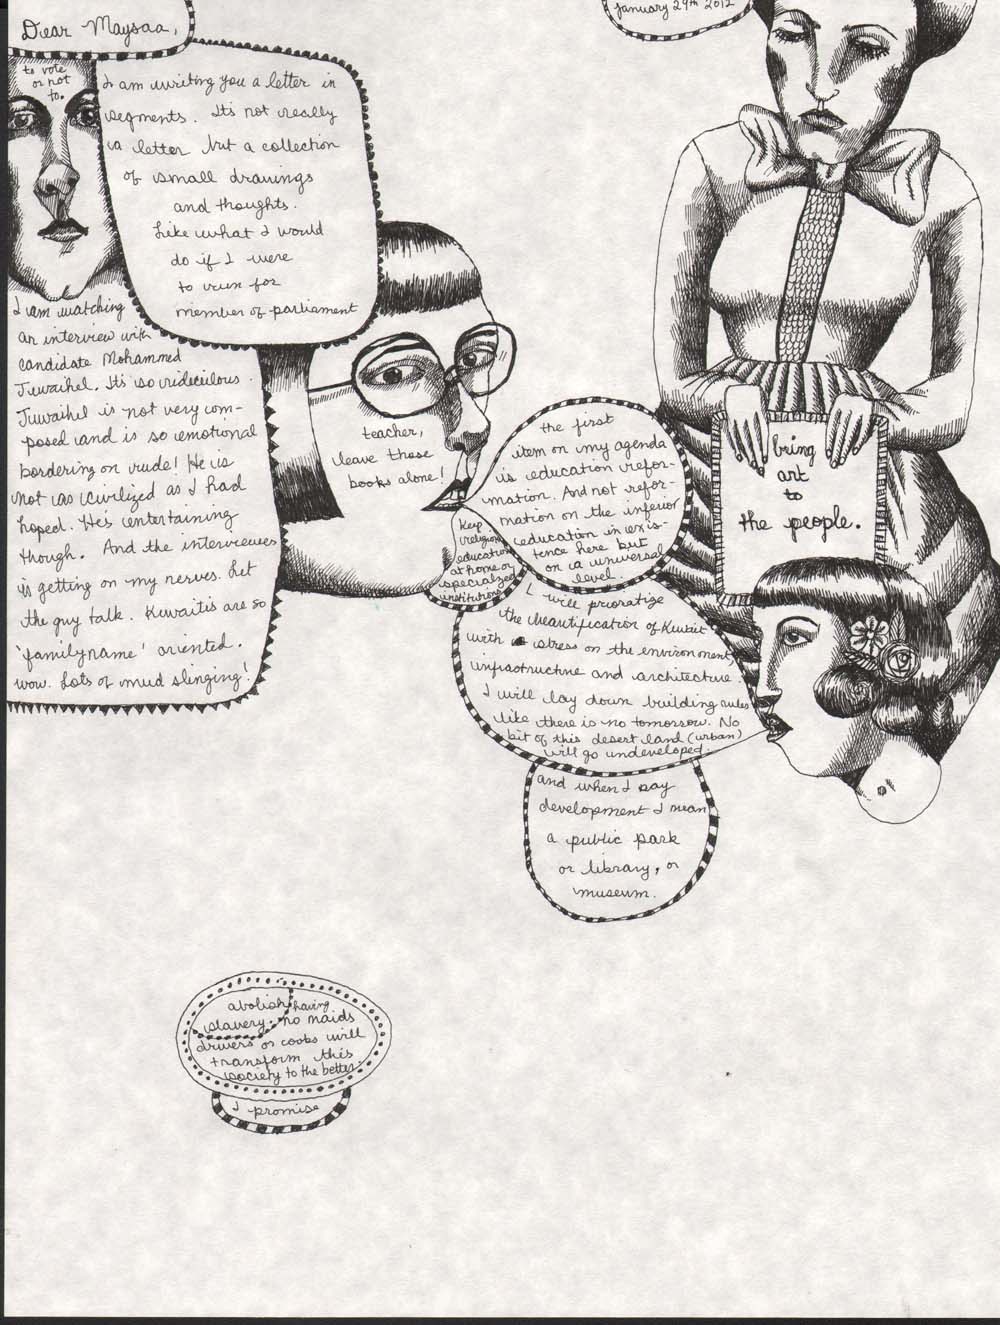 Dear Maysaa,
January 29th 2012
to vote
or not
to.
I am writing you a letter in
segments. It's not really
a letter but a collection
of small drawings
and thoughts.
Like what I would
do if I were
to run for
member of parliament
I am watching
an interview with
candidate Mohammed
Juwaihel. It's so ridiculous.
Juwaihel is not very com-
posed and is so emotional
bordering on rude! He is
not as civilized as I had
hoped. He's entertaining
though. And the interviewees
is getting on my nerves. Let
the guy talk. Kuwaitis are so
'familyname' oriented.
wow. Lots of mud slinging!
teacher,
leave those
books alone!
the first
item on my agenda
is education refor-
mation. And not refor-
mation on the inferior
education in exis-
tence here but
on a universal
level.
Keep
religion
education
at home or
specialized
institutions
I will prioratize
the beautification of Kuwait
with stress on the environment
infrastructure and architecture.
I will lay down building rules
like there is no tomorrow. No
bit of this desert land (urban)
will go undeveloped.
and when I say
development I mean
a public park
or library, or
museum.
bring
art
to
the people.
abolish
slavery.
having
no maids
drivers or cooks will
transform this
society to the better.
I promise